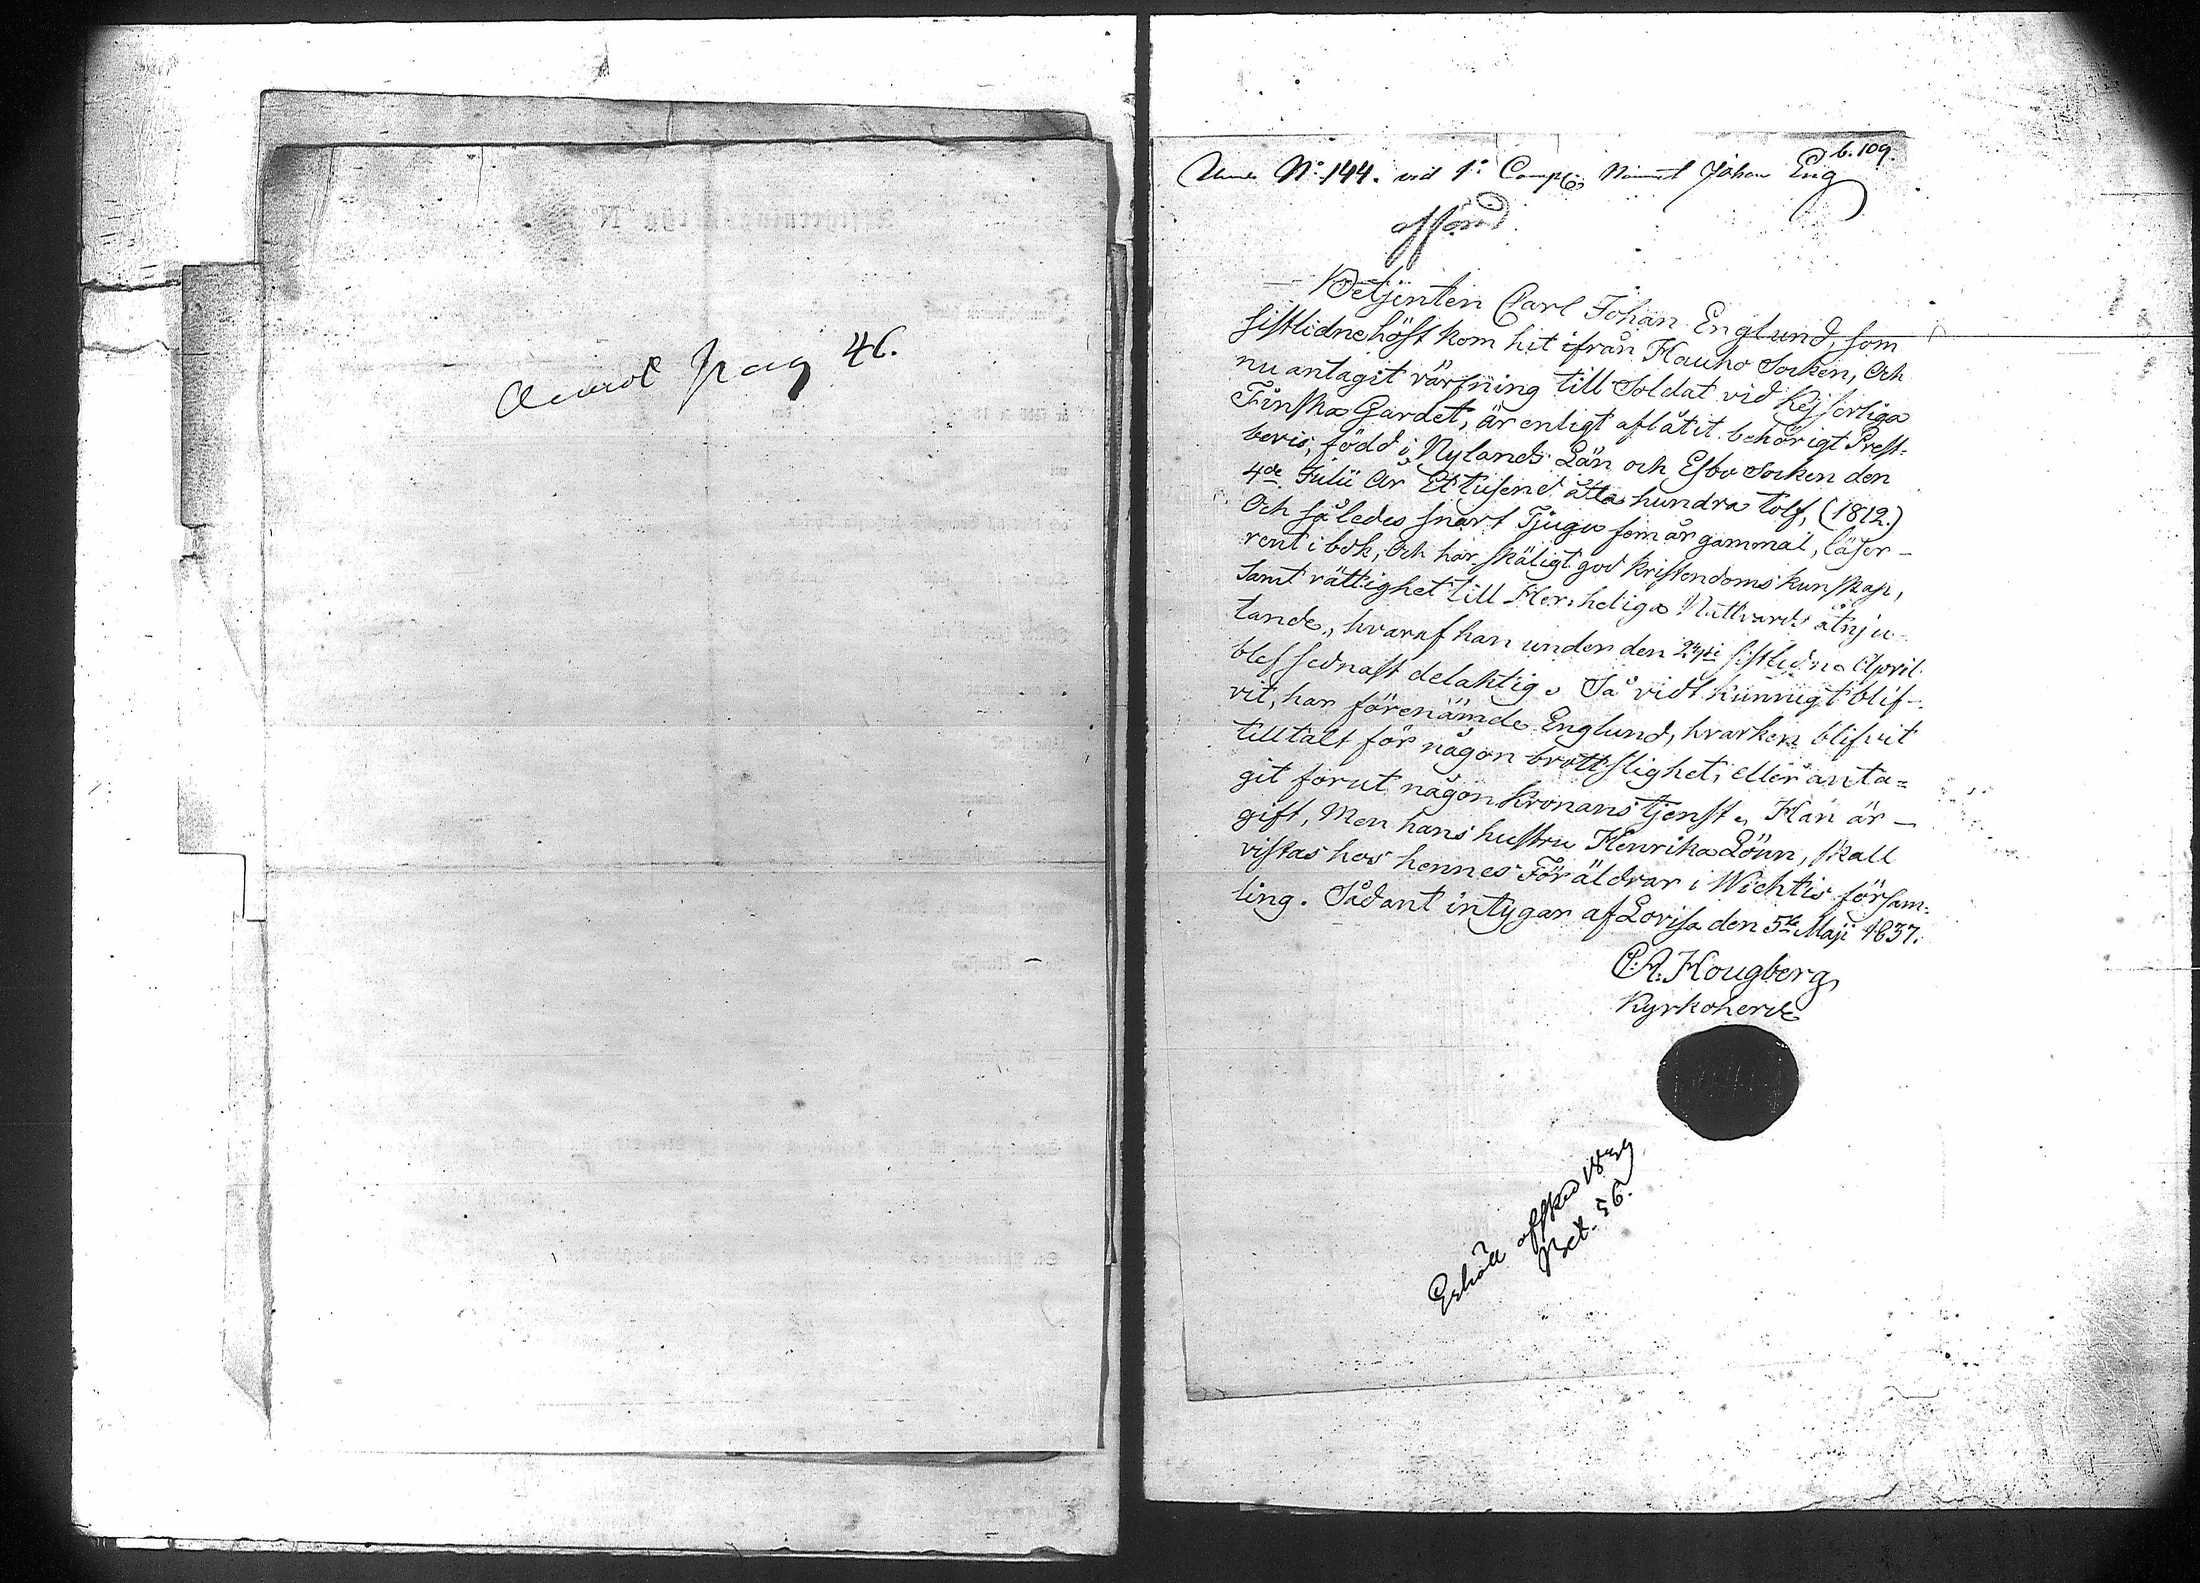 pag 46.
b. 109.
Under No 144. vid 1a Comp. Namnet Johan Eng
afförd
Betjenten Carl Johan Englund, som
sistlidne höst kom hit ifrån Hauho Socken, Och
nu antagit värfning till Soldat vid Kejserliga
Finska Gardet, är enligt aflåtit behörigt Prest-
bevis, född i Nylands Län och Esbo Socken den
4de Julii År Ett tusend åtta hundra tolf, (1812.)
Och således snart Tjugu fem år gammal, läser
rent i bok, Och har skäligt god Kristendoms kunskap,
Samt rättighet till Herrs heliga Nattvards åtnju-
tande, hvaraf han under den sistledne April
blef sednast delaktig. Så vidt kunnigt blif-
vit, har förenämde Englund, hvarken blifvit
tilltalt för någon brottslighet, eller anta=
git förut någon Kronans tjenst. Han är
gift, Men hans hustru Henrika Lönn, skall
vistas hos hennes Föräldrar i Wichtis försam=
ling. Sådant intygar af Lovisa den 5te Maji 1837.
C. A. Hougberg
Kyrkoherde
Erhöll afsked
Bet. 56.